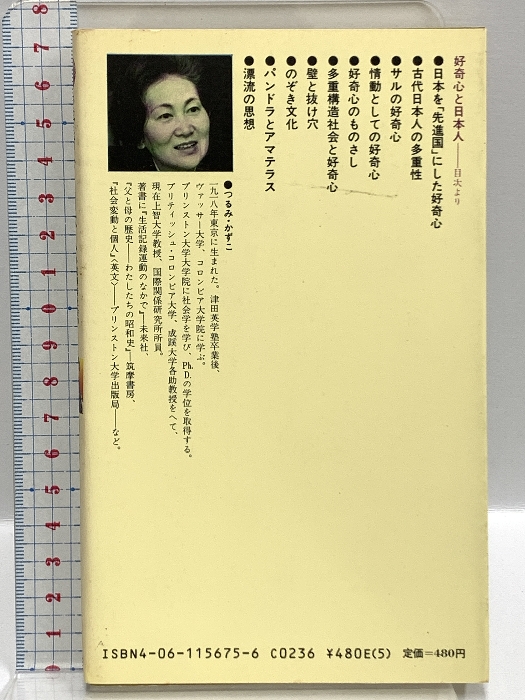 好奇心と日本人——目次より
●日本を「先進国」にした好奇心
●古代日本人の多重性
●サルの好奇心
●情動としての好奇心
●好奇心のものさし
●多重構造社会と好奇心
●壁と抜け穴
●のぞき文化
●パンドラとアマテラス
●漂流の思想
●つるみ・かずこ
一九一八年東京に生まれた。津田英学塾卒業後、
ヴァッサー大学、コロンビア大学院に学ぶ。
プリンストン大学大学院に社会学を学び、Ph.D.の学位を取得する。
ブリティッシュ・コロンビア大学、成蹊大学各助教授をへて、
現在上智大学教授、国際関係研究所所員。
著書に『生活記録運動のなかで』—未来社、
『父と母の歴史——わたしたちの昭和史』—筑摩書房、
『社会変動と個人』〈英文〉——プリンストン大学出版局——など。
ISBN4-06-115675-6 C0236 ¥480E(5) 定価=480円
8
7
6
5
4
3
2
1
0
9
8
7
6
5
4
3
2
1
0